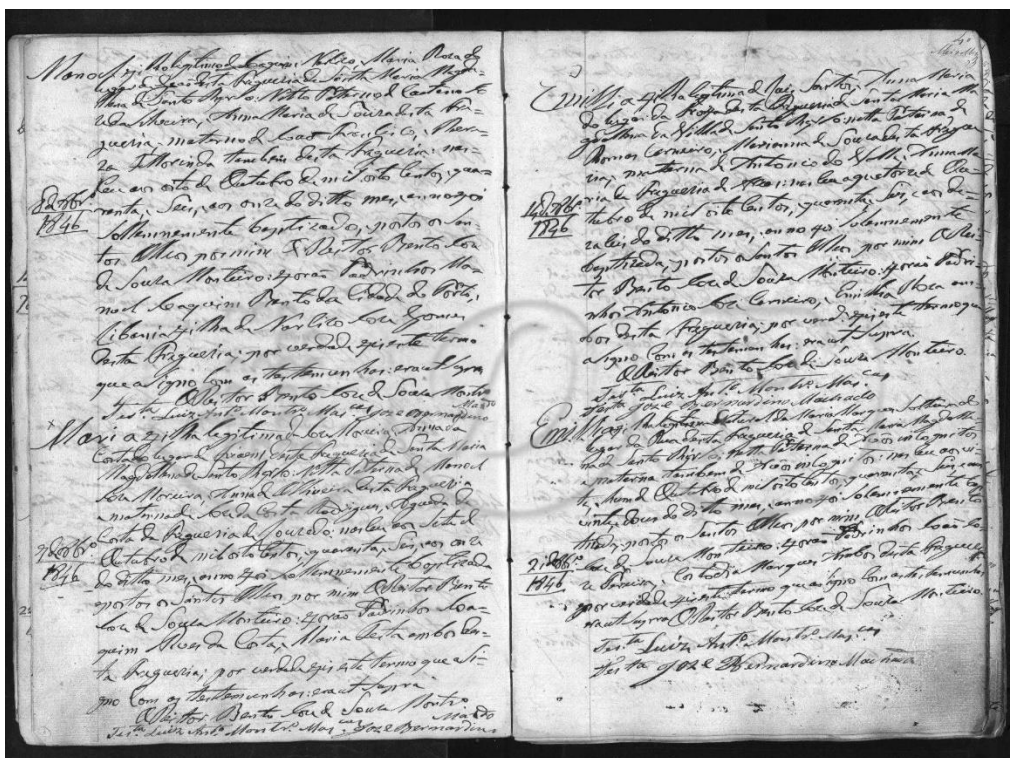 Manoel filho legitimo de Joaquim Maria Rosa do
lugar de desta Freguesia de Santa Maria Magda-
lena de Santo Thyrso: Netto Paterno de Caetano
da Silveira, Anna Maria de Souza desta Fre-
guesia, materno de
Florinda tambem desta Freguesia: nas-
ceu aos oito de Outubro de mil oito centos, qua-
renta, e Seis, e aos onze do ditto mes, e anno foi
Sollemnemente baptizado, e postos os San-
tos Olleos por mim O Reitor Bento Joze
de Souza Monteiro: forão Padrinhos Ma-
noel Joaquim Pinto da Cidade do Porto,
Libania filha de Narcizo Joze Gomes
desta Freguesia; por verdade fiz este termo
que asigno com as testemunhas: era ut supra
O Reitor Bento Joze de Souza Montro
Testa Luiz Anto Montro Joze Bernardino Macdo
8 d'8br.
1846
Maria filha legitima de Joze Moreira, Anna da
Costa do lugar de desta Freguesia de Santa Maria
Magdalena de Santo Thyrso: Netta Paterna de Manoel
Joze Moreira, Anna d'Oliveira desta Freguesia
e materna de Joze da Costa Rodrigues, Agueda da
Costa da Freguesia de Louredo: nasceu aos Sete de
Outubro de mil oito centos, quarenta, e Seis, e aos onze
do ditto mes, e anno foi Sollemnemente baptizada
e postos os Santos Olleos por mim O Reitor Bento
Joze de Souza Monteiro: forão Padrinhos Joa-
quim Alves da Costa, Maria Testa ambos des-
ta Freguesia; por verdade fiz este termo que asi-
gno com as testemunhas: era ut supra
O Reitor Bento Joze de Souza Montro
Testa Luiz Anto Montro Joze Bernardino Macdo
7 d'8bro
1846
Emillia filha legitima de Joze Santos, Anna Maria
do lugar da desta Freguesia de Santa Maria Ma-
gdalena da Villa de Santo Thyrso: neta Paterna de
Thomas Carneiro, Marianna de Souza desta Fregue-
sia, materna de Antonio do Valle, Anna Ma-
ria da Freguesia de nasceu aos quatorze de Ou-
tubro de mil oito centos, quarenta, e Seis, e aos de-
zaseis do ditto mes, e anno foi Solemnemente
baptizada, e postos os Santos Olleos por mim O Rei-
tor Bento Joze de Souza Monteiro: forão Padri-
nhos Antonio Joze Carneiro, Emilia Roza am-
bos desta Freguesia; por verdade fiz este termo que
asigno com as testemunhas: era ut supra
O Reitor Bento Joze de Souza Monteiro.
Testa Luiz Anto Montro
Testa Joze Bernardino Machado
14 d'8bro
1846
Emillia filha de Maria Marques Solteira do
lugar da desta Freguesia de Santa Maria Magdalle-
na de Santo Thyrso: Netta Paterna de Avós incognitos
e materna tambem de Avós incognitos: nasceu aos vin-
te, e hum de Outubro de mil oito centos, quarenta, e Seis, e aos
vinte, e dous do ditto mes, e anno foi Solemnemente bap-
tizada, e postos os Santos Olleos, por mim O Reitor Bento
Joze de Souza Monteiro: forão Padrinhos João Jo-
ze Pereira, Custodia Marques ambos desta Freguesia
por verdade fiz este termo que asigno com as testemunhas
era ut supra O Reitor Bento Joze de Souza Monteiro.
Testa Luiz Anto Montro
Testa Joze Bernardino Machado
21 d'8bro
1846